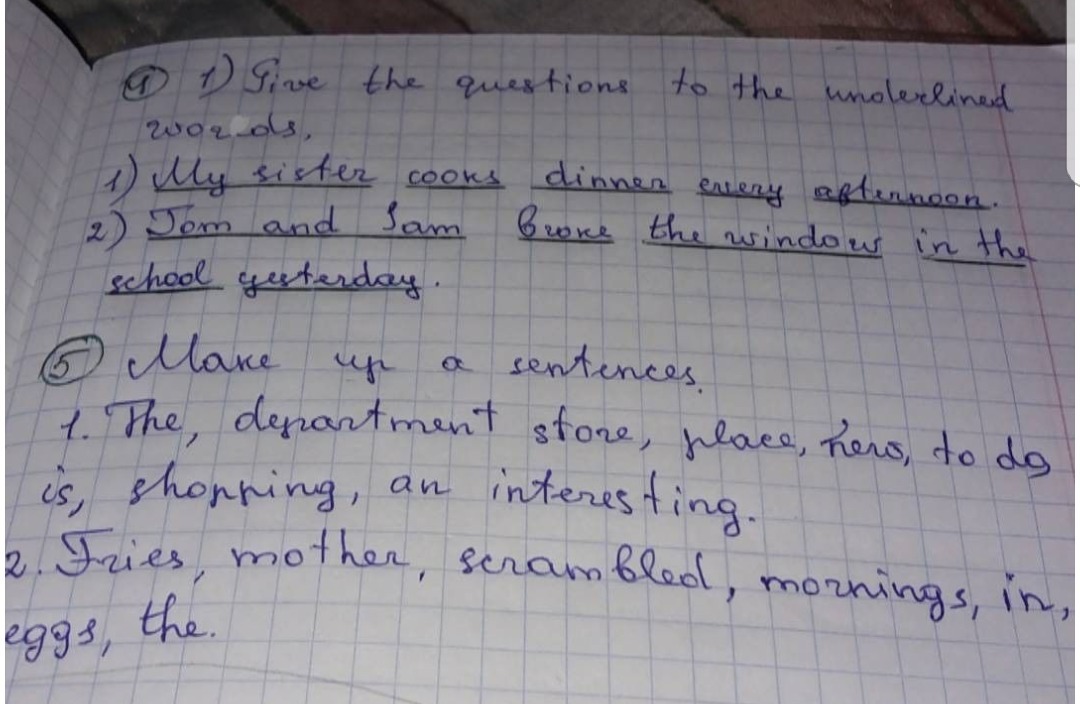 ④ 1) Give the questions to the underlined
words.
1) My sister cooks dinner every afternoon.
2) Tom and Sam broke the window in the
school yesterday.
⑤ Make up a sentences.
1. The, department store, place, hero, to do
is, shopping, an interesting.
2. Fries, mother, scrambled, mornings, in,
eggs, the.